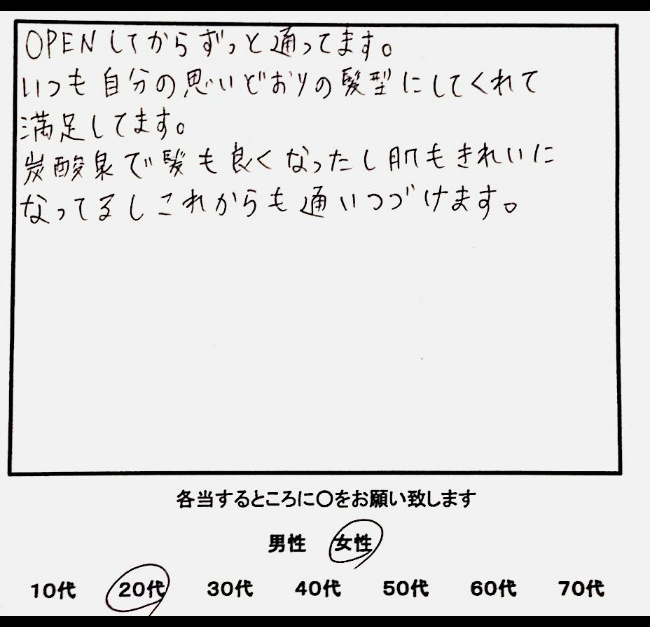 OPENしてからずっと通ってます。
いつも自分の思いどおりの髪型にしてくれて
満足してます。
炭酸泉で髪も良くなったし肌もきれいに
なってるしこれからも通いつづけます。
各当するところに○をお願い致します
男性 女性
10代 20代 30代 40代 50代 60代 70代